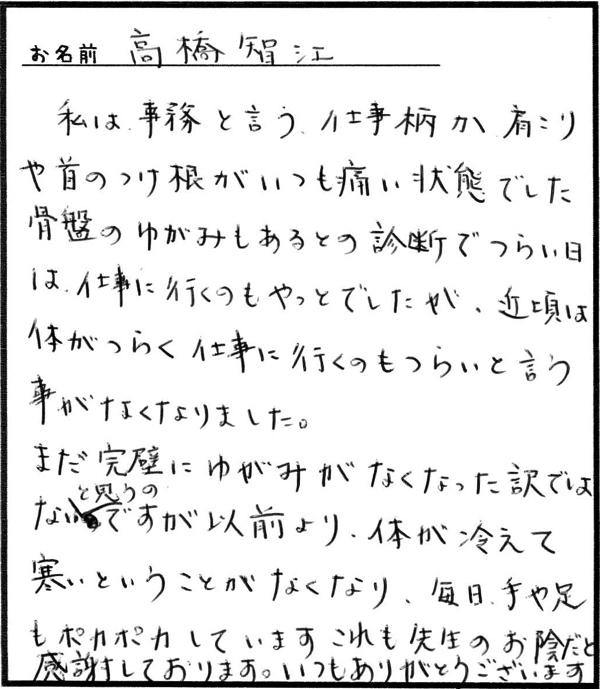 お名前 高橋智江
私は、事務と言う、仕事柄か、肩こり
や首のつけ根がいつも痛い状態でした
骨盤のゆがみもあるとの診断でつらい日
は、仕事に行くのもやっとでしたが、近頃は
体がつらく仕事に行くのもつらいと言う
事がなくなりました。
まだ完璧にゆがみがなくなった訳では
と思うの
ないですが以前より、体が冷えて
寒いということがなくなり、毎日、手や足
もポカポカしていますこれも先生のお陰だと
感謝しております。いつもありがとうございます